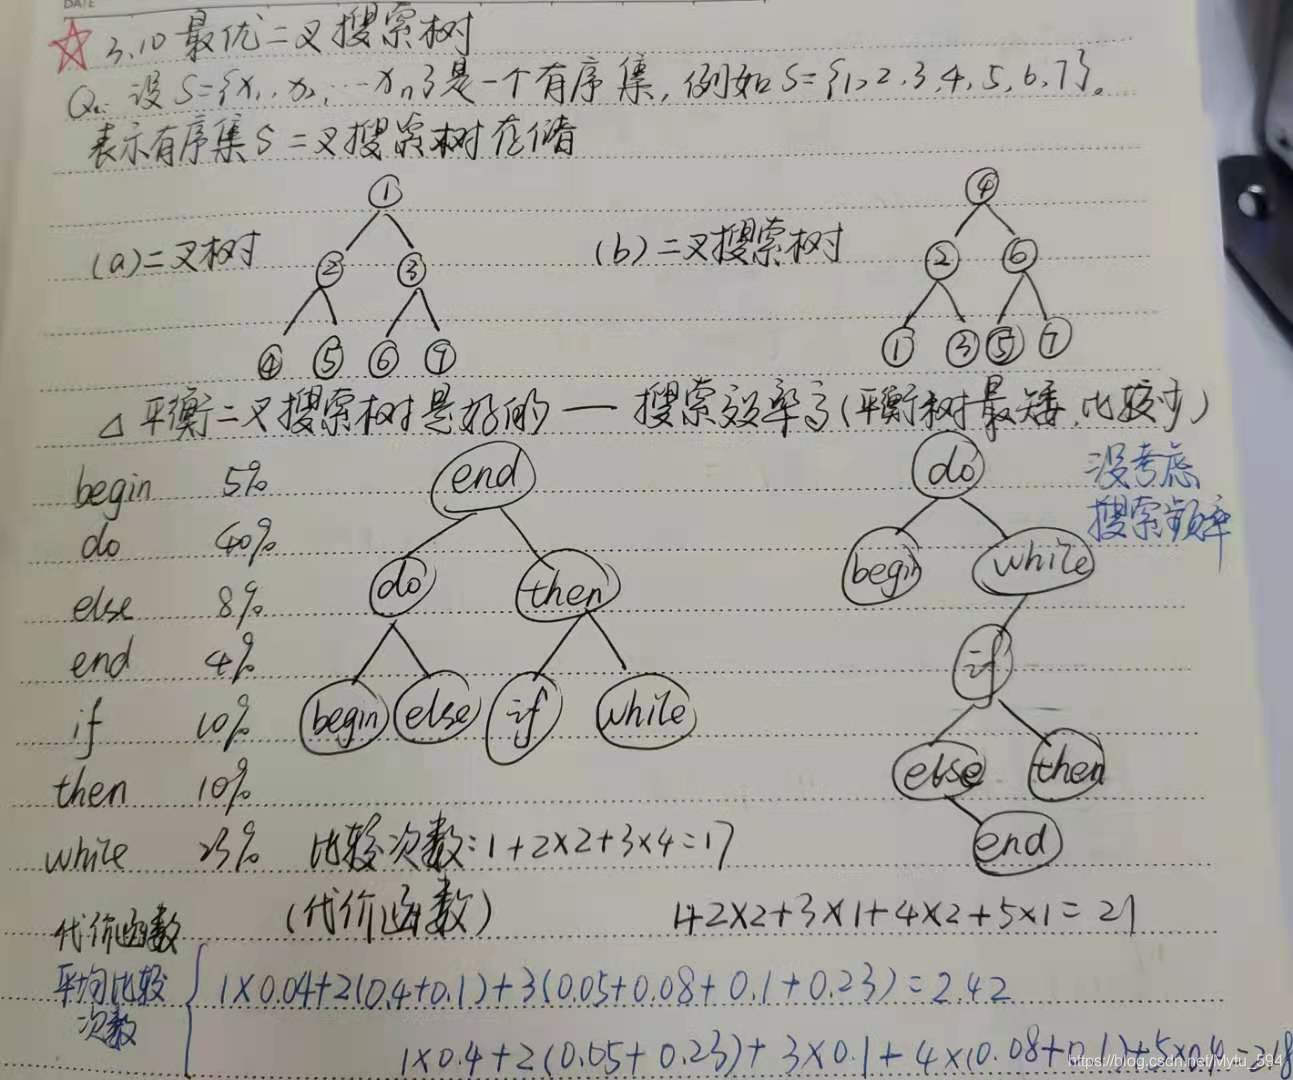 DATE
3.10 最优二叉搜索树
Q: 设S={x₁, x₂, ...xₙ}是一个有序集, 例如S={1,2,3,4,5,6,7}。
表示有序集S二叉搜索树存储
(a)二叉树
1
2 3
4 5 6 7
(b)二叉搜索树
4
2 6
1 3 5 7
△ 平衡二叉搜索树是好的 — 搜索效率高(平衡树最矮,比较少)
没考虑
搜索频率
begin 5%
do 40%
else 8%
end 4%
if 10%
then 10%
while 23%
end
do then
begin else if while
do
begin while
if
else then
end
比较次数:1+2×2+3×4=17
(代价函数)
1+2×2+3×1+4×2+5×1=21
代价函数
平均比较
次数
1×0.04+2(0.4+0.1)+3(0.05+0.08+0.1+0.23)=2.42
1×0.4+2(0.05+0.23)+3×0.1+4×(0.08+0.1)+5×0.4
https://blog.csdn.net/Mytu_594